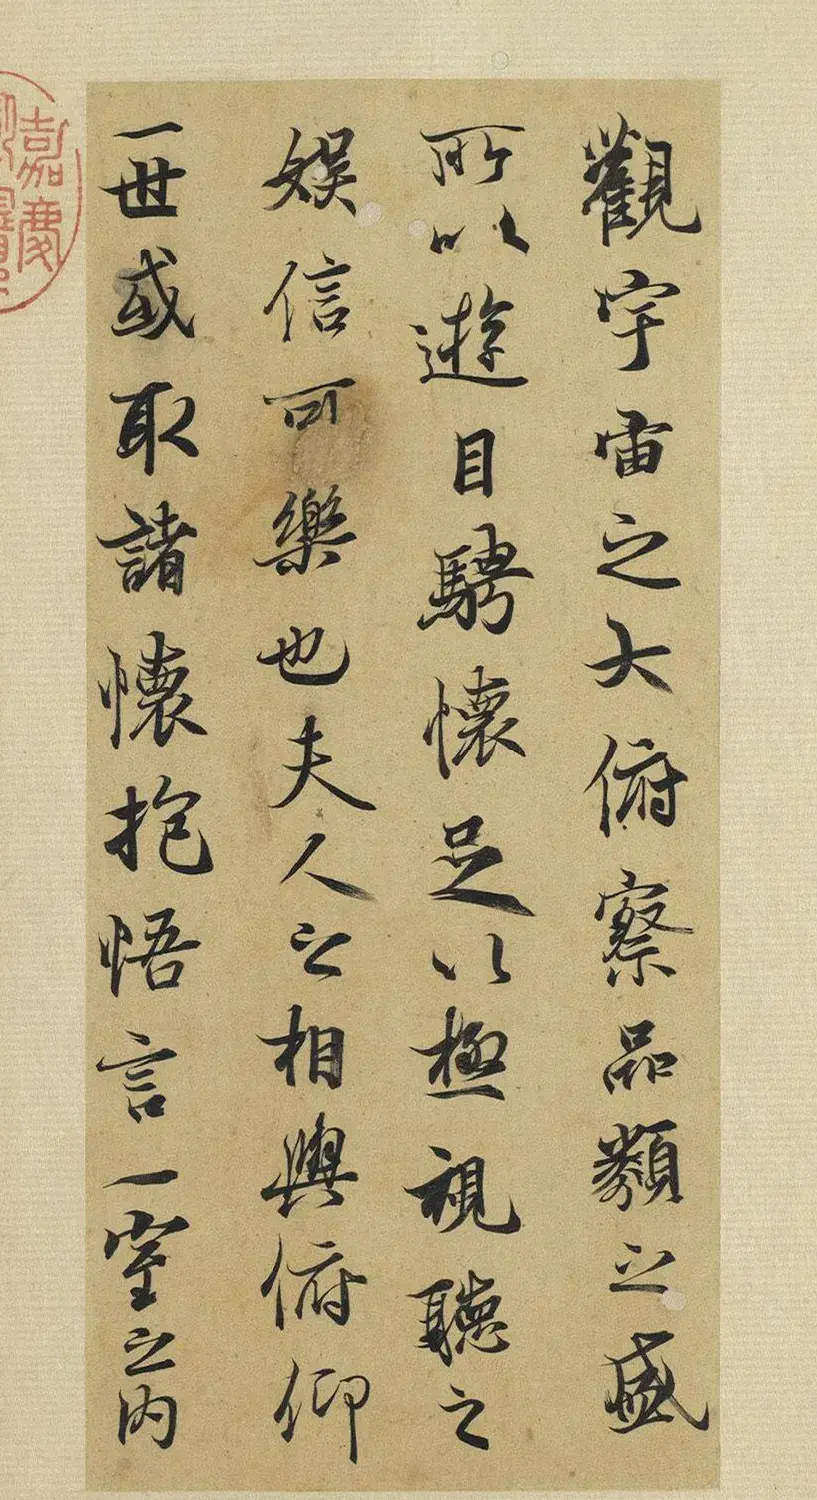 觀宇宙之大俯察品類之盛
所以遊目騁懷足以極視聽之
娛信可樂也夫人之相與俯仰
一世或取諸懷抱悟言一室之內
嘉慶